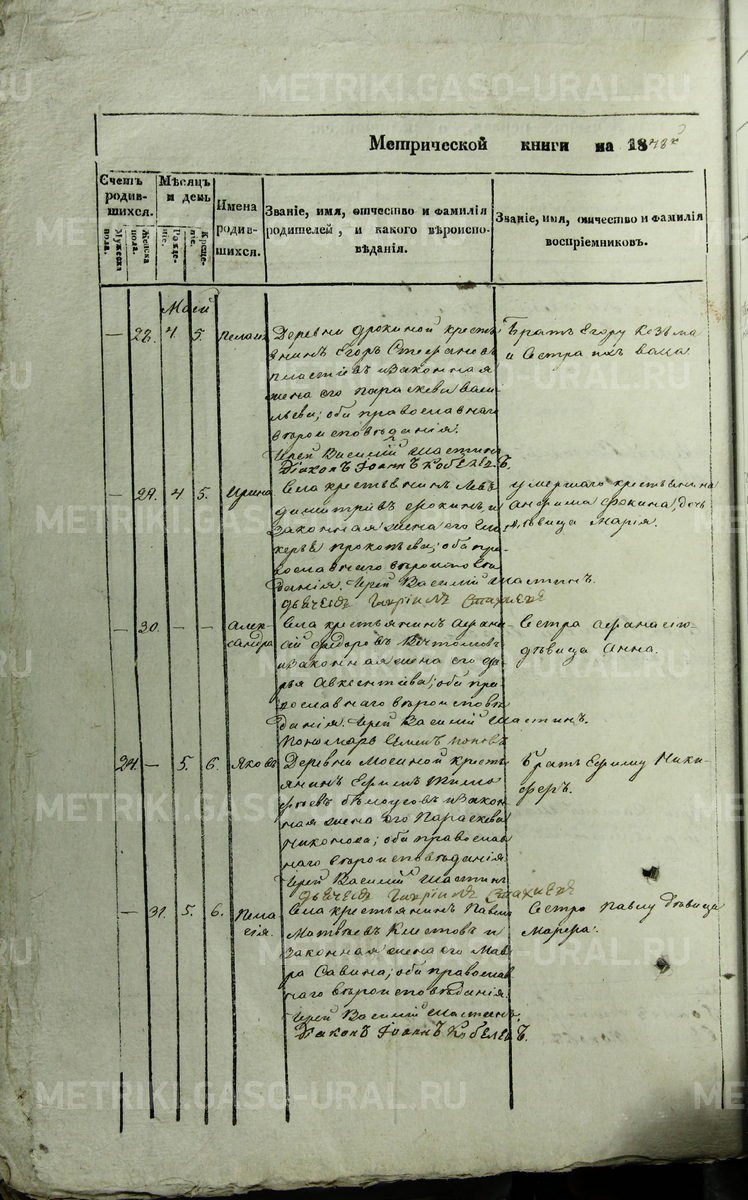 METRIKI.GASO-URAL.RU
Метрической книги на 1848й
Счетъ родившихся.
Мѣсяцъ и день
Имена родившихся.
Званіе, имя, отчество и фамилія
родителей, и какого вѣроиспо-
вѣданія.
Званіе, имя, отчество и фамилія
воспріемниковъ.
Мужеска пола.
Женска пола.
Рожденіе.
Крещеніе.
Маій
— 28. 4. 5.
Деревни кресть
янинъ Егоръ Стефановъ
и законная
жена его Параскева Васи
льева; оба православнаго
вѣроисповѣданія.
Іерей Василій Шастинъ
Діаконъ Іоаннъ Кобелевъ.
Братъ Егору Козьма
и Сестра ихъ
— 29. 4 5. Ирина
Села крестьянинъ Левъ
Димитріевъ и
законная жена его Гли
керья Прокопьева; оба пра-
вославнаго вѣроисповѣ
данія. Іерей Василій Шастинъ.
дьячекъ Гавріилъ Стахіевъ
умершаго крестьянина
дочь
дѣвица Марія.
— 30. — — Алек-
сандра
Села крестьянинъ Афана
сій Федоровъ
и законная жена его да
рья Авксентіева; оба пра-
вославнаго вѣроисповѣ
данія. Іерей Василій Шастинъ.
Пономарь Семенъ Поповъ
Сестра Афанасію
дѣвица Анна.
24. — 5. 6. Яковъ
Деревни Мосиной кресть
янинъ Ефимъ Тимо
фѣевъ Бѣлоусовъ и закон
ная жена его Параскева
Никонова; оба православ
наго вѣроисповѣданія.
Іерей Василій Шастинъ
дьячекъ Гавріилъ Стахіевъ
Братъ Ефиму Ники-
форъ.
— 31. 5. 6. Пела
гія.
Села крестьянинъ Павелъ
Матвѣевъ Клестовъ и
законная жена его Мав
ра Савина; оба православ
наго вѣроисповѣданія.
Іерей Василій Шастинъ.
Діаконъ Іоаннъ Кобелевъ.
Сестра Павлу дѣвица